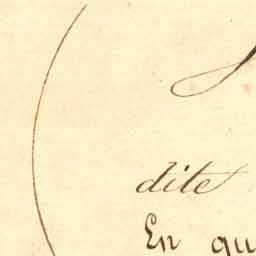 dite
En qu